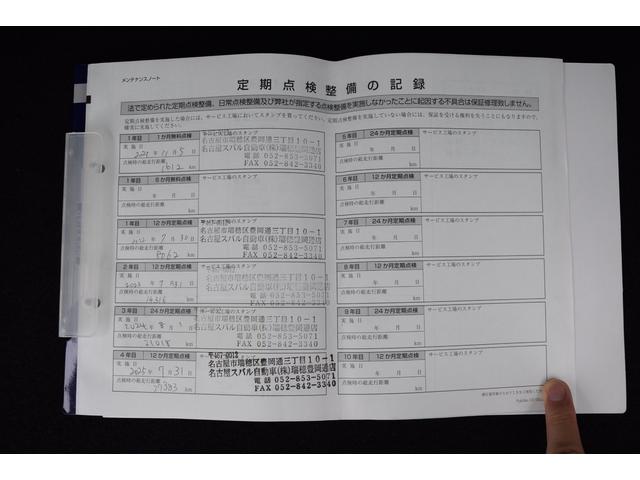 メンテナンスノート
定期点検整備の記録
法で定められた定期点検整備、日常点検整備及び弊社が指定する点検整備を実施しなかったことに起因する不具合は保証修理致しません。
定期点検整備を実施した場合には、サービス工場においてスタンプを貰ってください。定期点検整備を実施していない場合には、保証を受ける権利を失うことにもなりますので、
確実に実施してください。
1年目 1か月無料点検
実施日
点検時の総走行距離
1612 km
名古屋市瑞穂区豊岡通三丁目10-1
名古屋スバル自動車(株)瑞穂豊岡店
電話 052-853-5071
FAX 052-842-3340
1年目 6か月無料点検
サービス工場のスタンプ
実施日
年 月 日
点検時の総走行距離
km
1年目 12か月定期点検
実施日
2022年7月30日
点検時の総走行距離
8062 km
名古屋市瑞穂区豊岡通三丁目10-1
名古屋スバル自動車(株)瑞穂豊岡店
電話 052-853-5071
FAX 052-842-3340
2年目 12か月定期点検
実施日
2023年7月31日
点検時の総走行距離
14316
名古屋市瑞穂区豊岡通三丁目10-1
名古屋スバル自動車(株)瑞穂豊岡店
電話 052-853-5071
FAX 052-842-3340
3年目 24か月定期点検
実施日
点検時の総走行距離
名古屋市瑞穂区豊岡通三丁目10-1
名古屋スバル自動車(株)瑞穂豊岡店
電話 052-853-5071
FAX 052-842-3340
4年目 12か月定期点検
実施日
2025年7月31日
点検時の総走行距離
名古屋市瑞穂区豊岡通三丁目10-1
名古屋スバル自動車(株)瑞穂豊岡店
電話 052-853-5071
FAX 052-842-3340
5年目 24か月定期点検
サービス工場のスタンプ
実施日
年 月 日
点検時の総走行距離
km
6年目 12か月定期点検
サービス工場のスタンプ
実施日
年 月 日
点検時の総走行距離
km
7年目 24か月定期点検
サービス工場のスタンプ
実施日
年 月 日
点検時の総走行距離
km
8年目 12か月定期点検
サービス工場のスタンプ
実施日
年 月 日
点検時の総走行距離
km
9年目 24か月定期点検
サービス工場のスタンプ
実施日
年 月 日
点検時の総走行距離
km
10年目 12か月定期点検
サービス工場のスタンプ
実施日
年 月 日
点検時の総走行距離
km